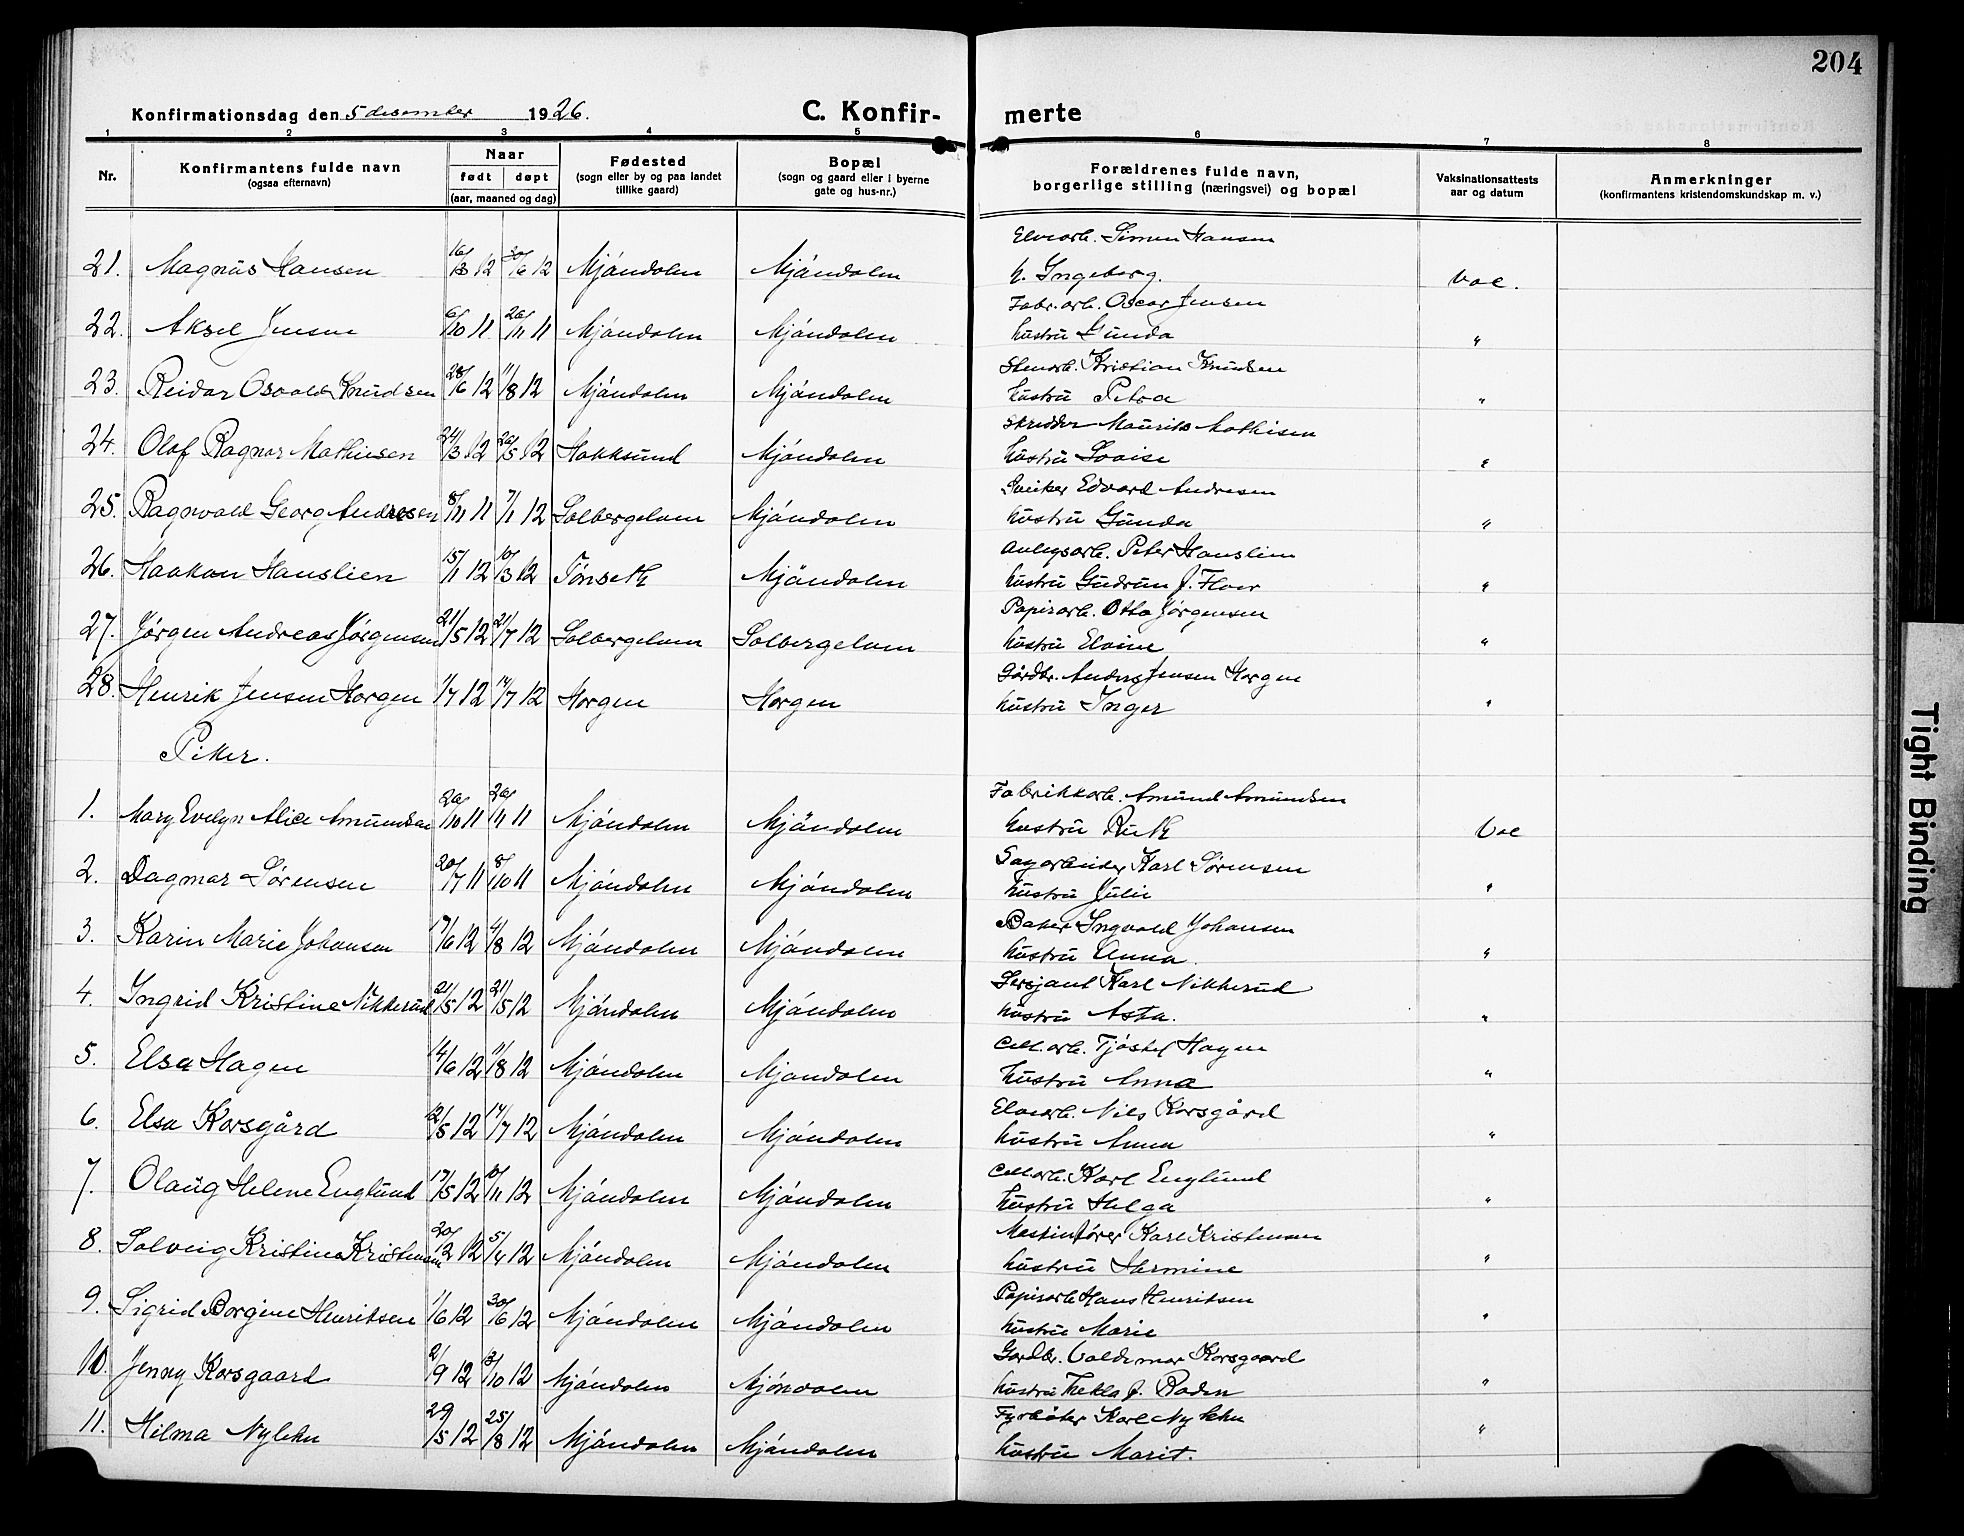 204
Konfirmationsdag den 5 desember 1926.
C. Konfir-
merte
1 2 3 4 5 6 7 8
Nr.
Konfirmantens fulde navn
(ogsaa efternavn)
Naar
født døpt
(aar, maaned og dag)
Fødested
(sogn eller by og paa landet
tillike gaard)
Bopæl
(sogn og gaard eller i byerne
gate og hus-nr.)
Forældrenes fulde navn,
borgerlige stilling (næringsvei) og bopæl
Vaksinationsattests
aar og datum
Anmerkninger
(konfirmantens kristendomskundskap m. v.)
Elvearb. Simen Hansen
21. Magnus Hansen 16/3 12 30/6 12 Mjöndalen Mjöndalen h. Ingeborg. Vac.
Fabr. arb. Oscar Jensen
22. Aksel Jensen 6/10 11 26/11 11 Mjöndalen Mjöndalen hustru Gunda "
Stenarb. Kristian Knudsen
23. Reidar Osvald Knudsen 28/6 12 11/8 12 Mjöndalen Mjöndalen hustru Petra "
Skredder Maurits Mathisen
24. Olaf Ragnar Mathiesen 24/3 12 26/5 12 Hokksund Mjöndalen hustru Lovise "
Edvard Andresen
25. Ragnvald Georg Andresen 8/11 11 7/1 12 Solbergelven Mjöndalen hustru Gunda "
Anlegsarb. Peter Hauslien
26. Haakon Hauslien 15/1 12 10/3 12 Tönseth Mjöndalen hustru Gudrun f. Floer "
Papirarb. Otto Jörgensen
27. Jörgen Andreas Jörgensen 21/5 12 21/7 12 Solbergelven Solbergelven hustru Elvine "
Gårdbr. Anders Jensen Horgen
28. Henrik Jensen Horgen 1/7 12 14/7 12 Horgen Horgen hustru Inger "
Piker.
Fabrikkarb. Amund Amundsen
1. Mary Evelyn Alice Amundsen 26/10 11 26/11 11 Mjöndalen Mjöndalen hustru Ruth Vac
Sagarbeider Karl Sörensen
2. Dagmar Sörensen 20/7 11 8/10 11 Mjöndalen Mjöndalen hustru Julie "
Baker Ingvald Johansen
3. Karin Marie Johansen 17/6 12 4/8 12 Mjöndalen Mjöndalen hustru Anna. "
Sersjant Karl Nikkerud
4. Ingrid Kristine Nikkerud 2/5 12 21/5 12 Mjöndalen Mjöndalen hustru Asta. "
Cell. arb. Tjöstel Hagen
5. Elsa Hagen 14/6 12 11/8 12 Mjöndalen Mjondalen hustru Anna "
Elvearb. Nils Korsgård
6. Elsa Korsgård 12/5 12 14/7 12 Mjöndalen Mjöndalen hustru Anna "
Cell. arb. Karl Englund
7. Olaug Helene Englund 17/5 12 10/11 12 Mjöndalen Mjöndalen hustru Helga "
Maskinförer Karl Kristensen
8. Solveig Kristine Kristensen 20/2 12 5/4 12 Mjöndalen Mjöndalen hustru Hermine "
Papirarb. Hans Henriksen
9. Sigrid Borgine Henriksen 1/6 12 30/6 12 Mjöndalen Mjöndalen hustru Marie "
Gardbr. Valdemar Korsgaard
10. Jenny Korsgaard 2/9 12 3/10 12 Mjöndalen Mjöndalen hustru Thekla f. Roden "
Fyrböter Karl Nylehn
11. Hilma Nylehn 29/5 12 25/8 12 Mjöndalen Mjöndalen hustru Marit. "
Tight Binding